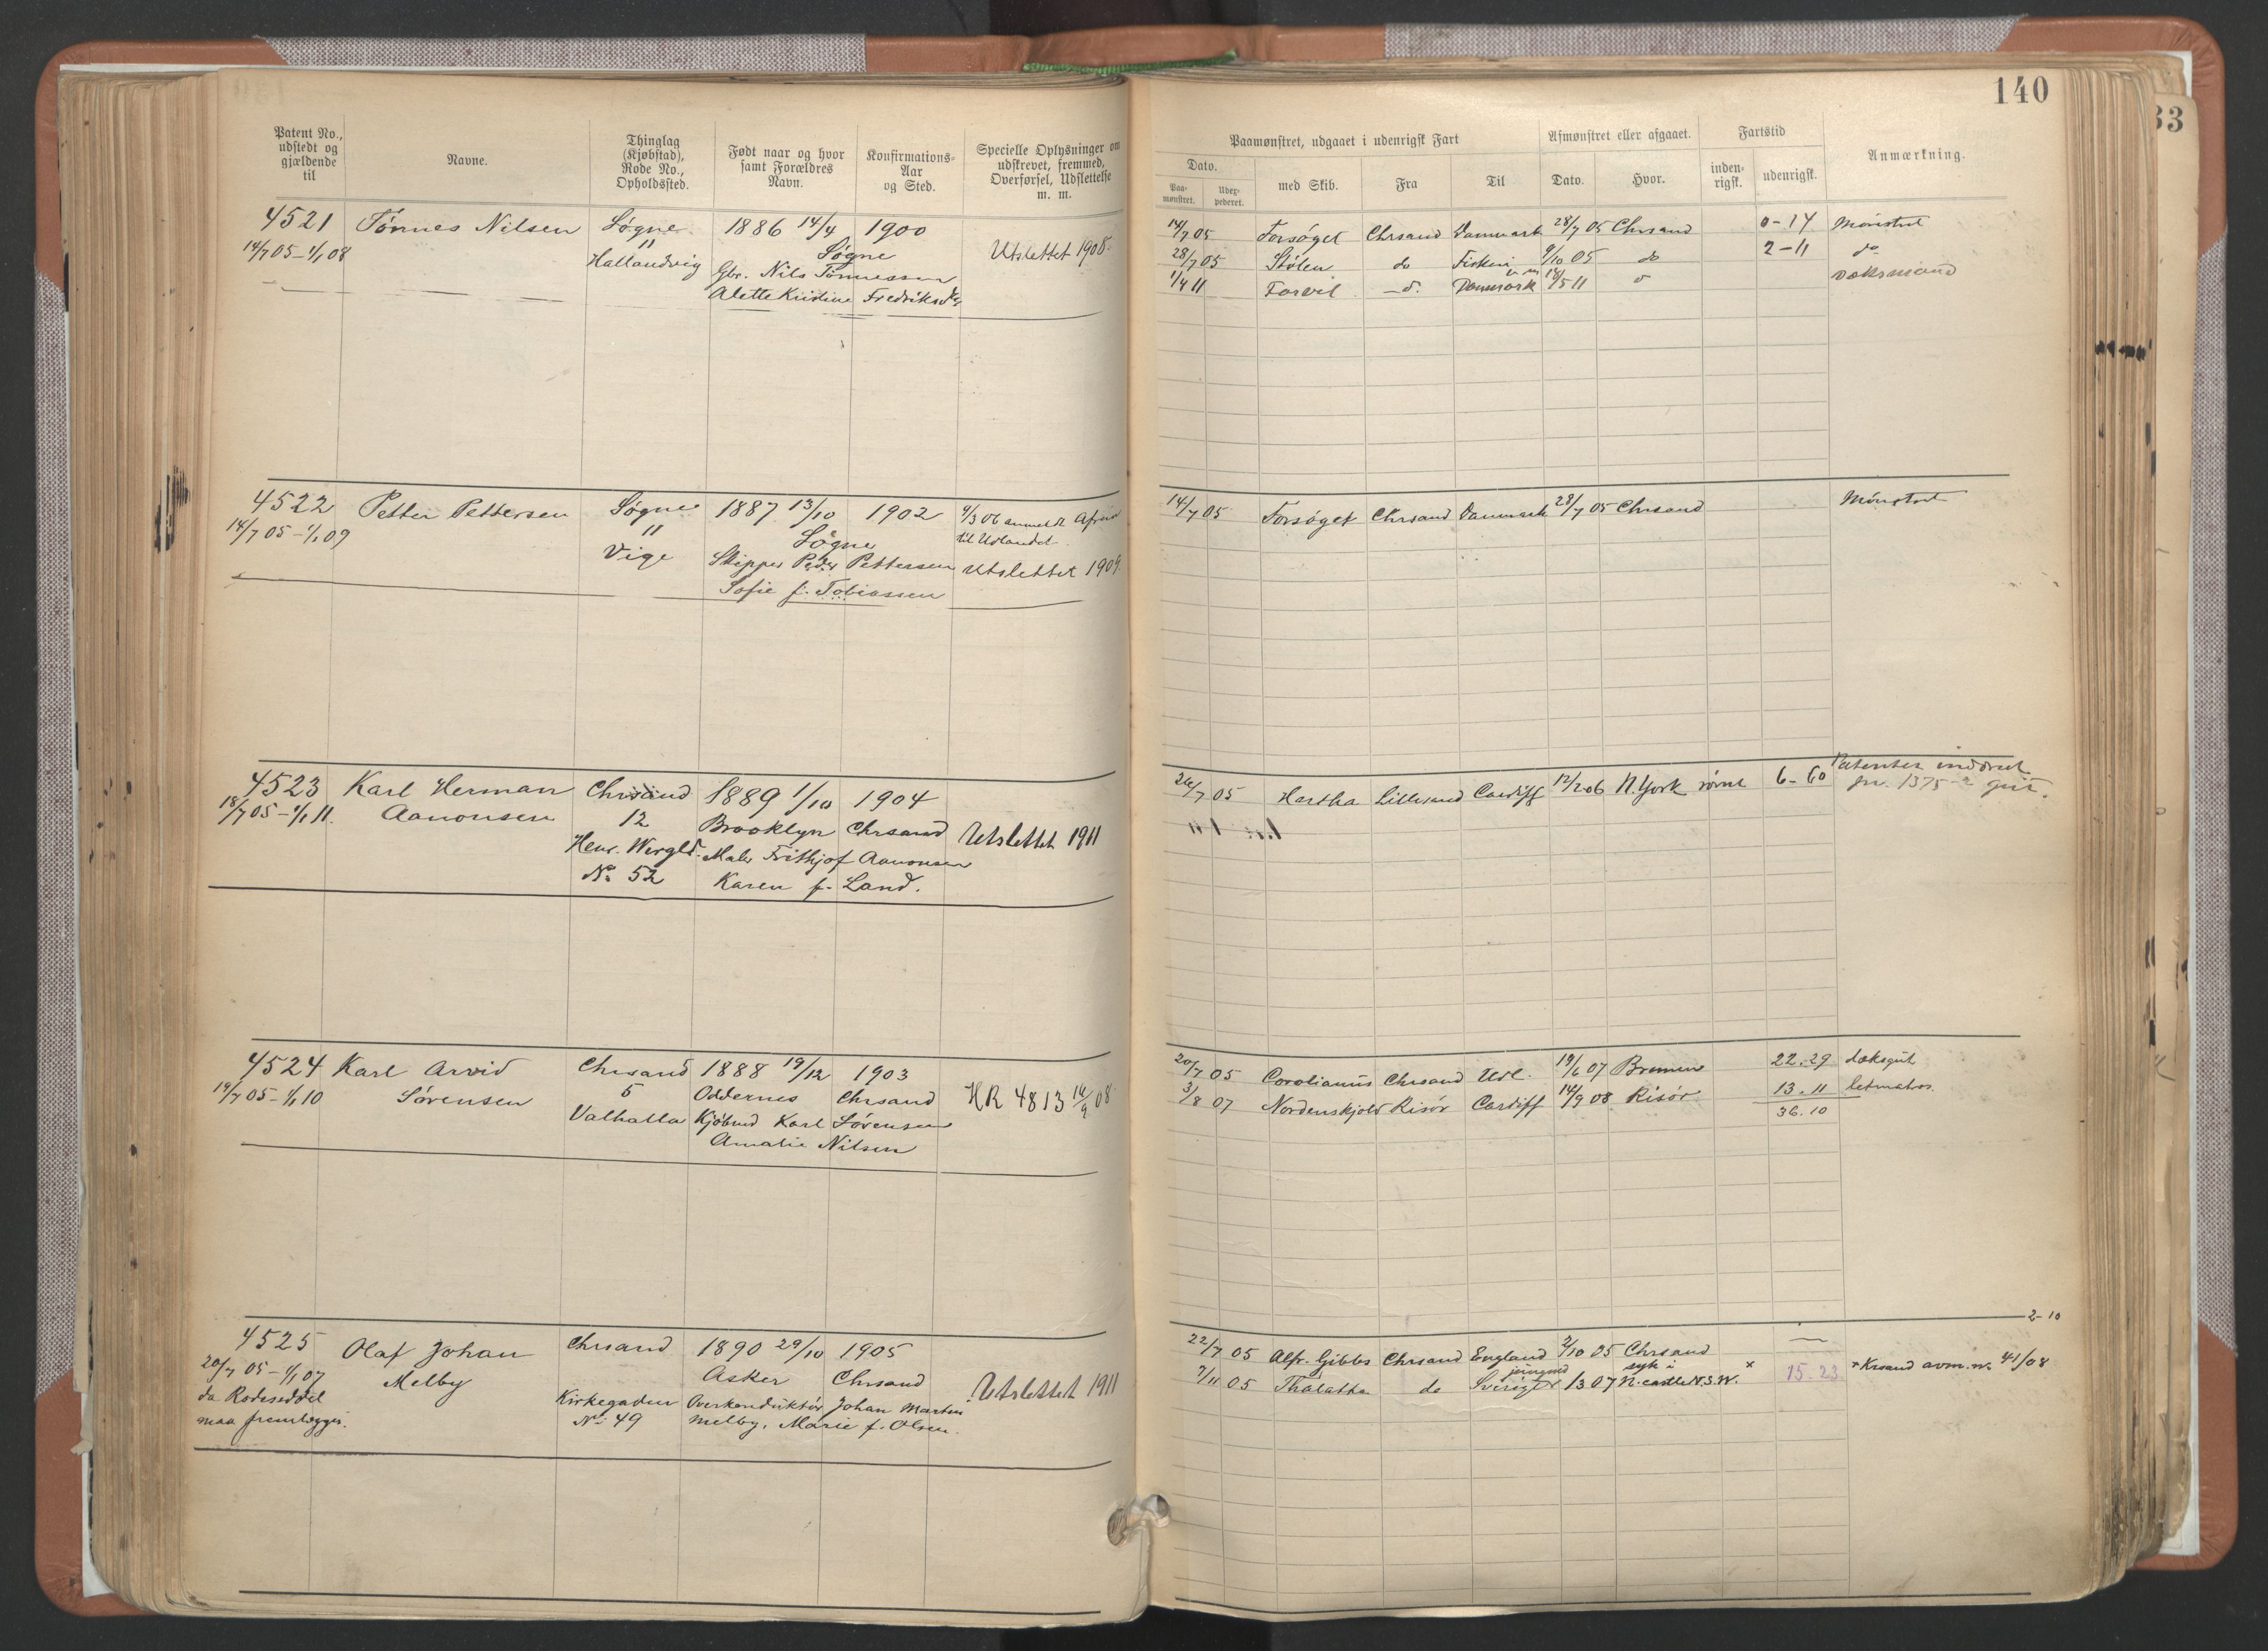 140
33
Patent No., udstedt og gjældende til
Navne.
Thinglag (Kjøbstad), Rode No., Opholdssted.
Født naar og hvor samt Forældres Navn.
Konfirmations-Aar og Sted.
Specielle Oplysninger om udskrevet, fremmed, Overførsel, Udslettelse m. m.
Paamønstret, udgaaet i udenrigsk Fart
Afmønstret eller afgaaet.
Fartstid
Anmærkning.
Dato.
Paa-mønstret.
Udex-pederet.
med Skib.
Fra
Til
Dato.
Hvor.
inden-rigsk.
udenrigsk.
4521 Tønnes Nilsen Søgne 1886 14/4 1900
14/7 05 – 1/1 08 " Søgne Utslettet 1908.
Hallandvig Gbr. Nils Tønnessen
Alette Kristine Fredriksd
14/7 05 Forsøget Chrsand Danmark 28/7 05 Chrsand 0–14 Mønstret
28/7 05 Stølen do Fiskeri 9/10 05 do 2–11 do
1/4 11 Farvel d. Danmark 18/5 11 d dæksmand
4522 Petter Pettersen Søgne 1887 13/10 1902 9/3 06 anmeldt
14/7 05 – 1/1 09 " Søgne til Udlandet
Vige Skipper Peder Pettersen Utslettet 1909.
Sofie f. Tobiassen
14/7 05 Forsøget Chrsand Danmark 28/7 05 Chrsand Mønstret
4523 Karl Herman Chrsand 1889 1/10 1904
18/7 05 – 1/1 11. Aanonsen 12 Brooklyn Chrsand Utslettet 1911
Henr. Wergld. Maler Frithjof Aanonsen
No 52 Karen f. Land.
26/7 05 Hertha Lillesand Cardiff 12/2 06 N. York rømt 6–60 Patentet inddraet
jr. 1375
4524 Karl Arvid Chrsand 1888 19/12 1903
19/7 05 – 1/1 10 Sørensen 5 Oddernes Chrsand HR 4813 14/9 08
Valhalla Kjøbmd Karl Sørensen
Amalie Nilsen
20/7 05 Corolianus Chrsand Udl. 19/6 07 Bremen 22.29 dæksgut
3/8 07 Nordenskjold Risör Cardiff 14/9 08 Risör 13.11 letmatros
36.10
4525 Olaf Johan Chrsand 1890 29/10 1905
20/7 05 – 1/1 07 Melby Asker Chrsand Utslettet 1911
da Rodeseddel Kirkegaden Overkonduktør Johan Martin
maa fremlægges. No 49 Melby, Marie f. Olsen.
2–10
22/7 05 Alfr. Gibbs Chrsand England 2/10 05 Chrsand —
7/11 05 Thalatta do Sverige 1/3 07 syk i N.castle N.S.W. × 15.23 × Krsand avm. nr. 41/08